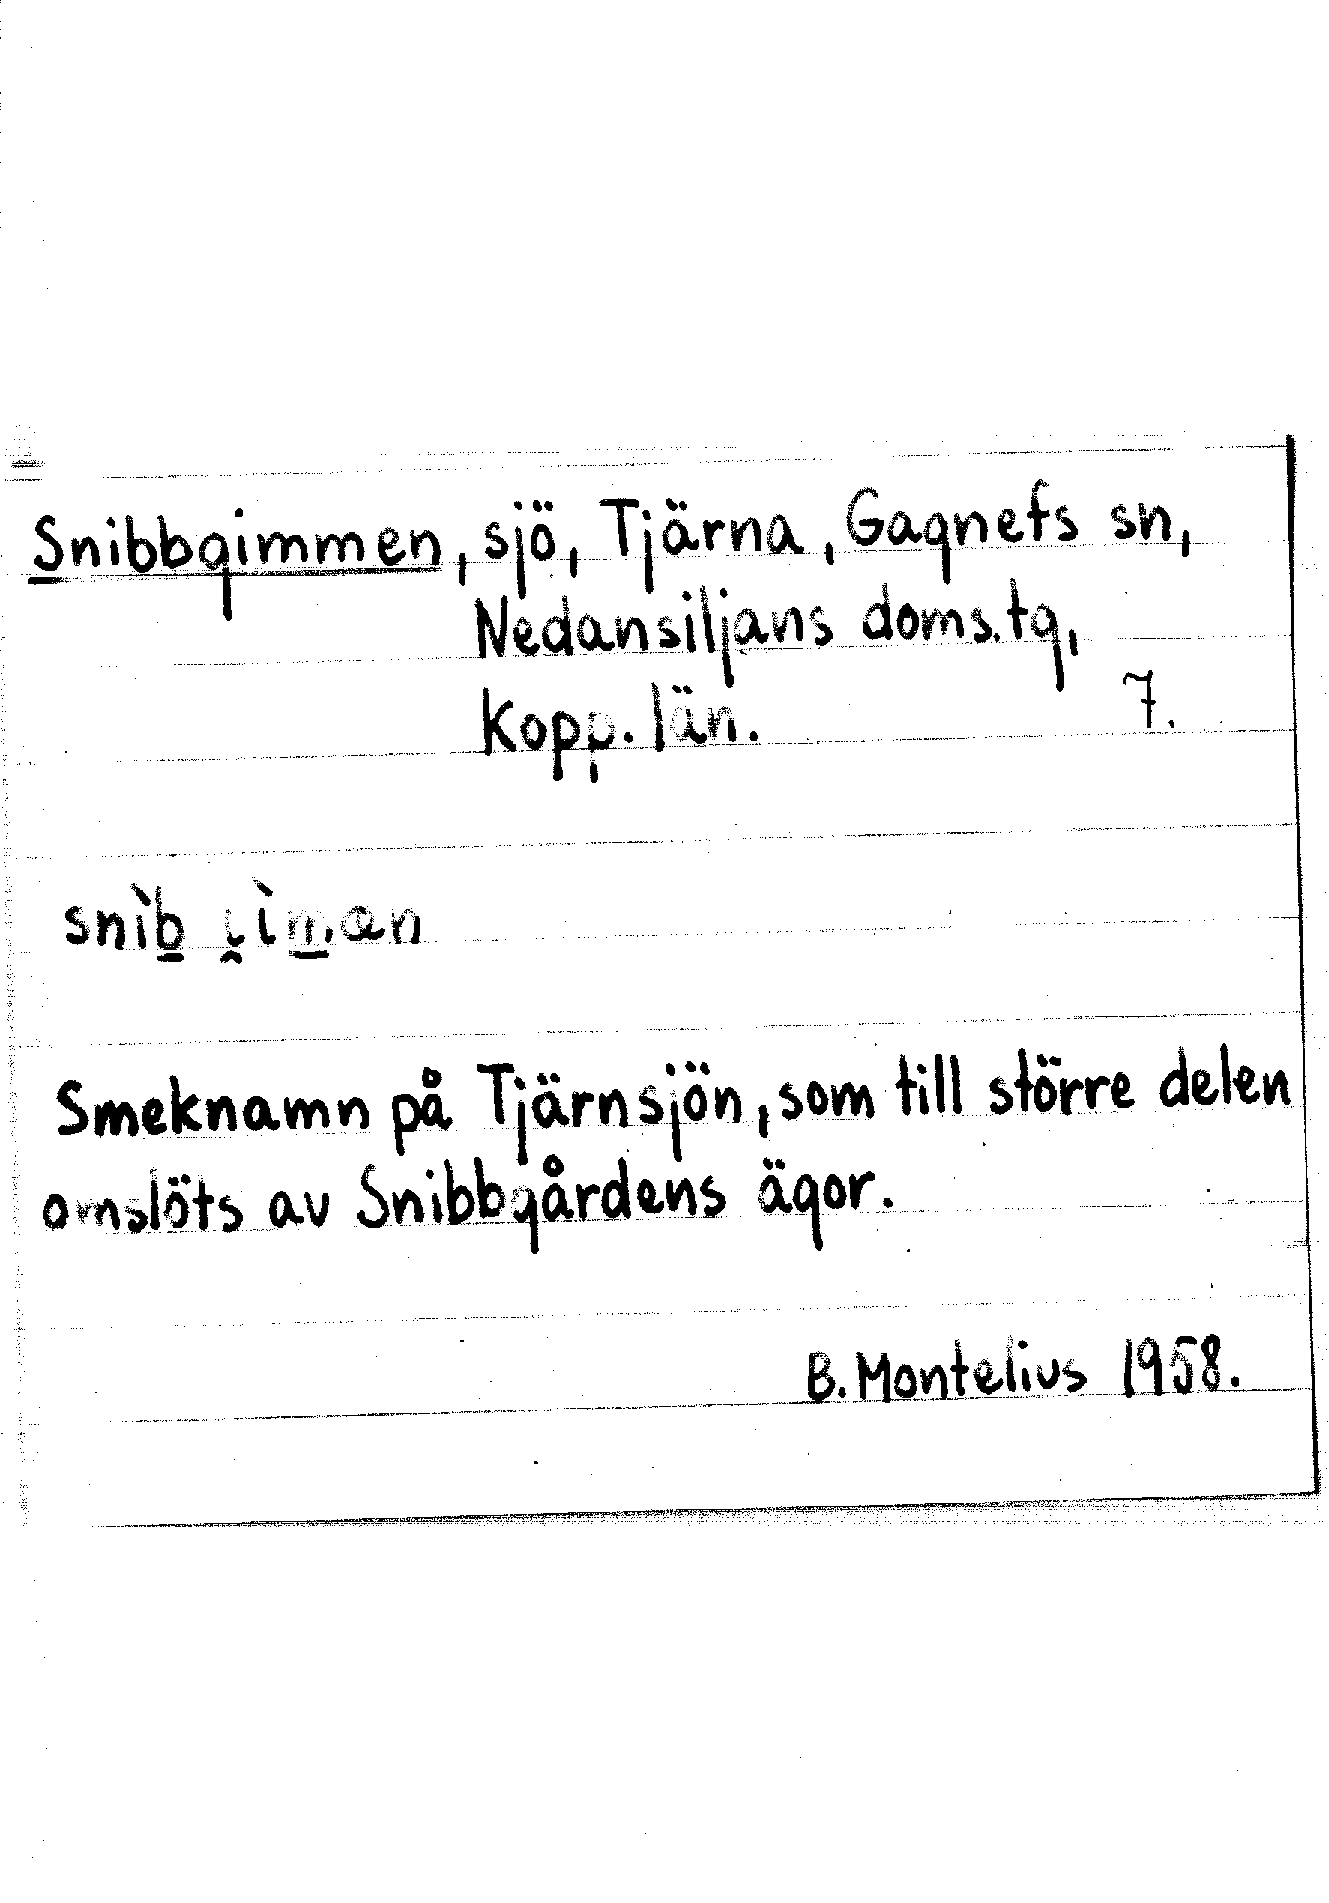 Snibbgimmen, sjö, Tjärna, Gagnefs sn,
Nedansiljans doms.tg,
Kopp. län. 7.
Smeknamn på Tjärnsjön, som till större delen
omslöts av Snibbgårdens ägor.
B. Montelius 1958.